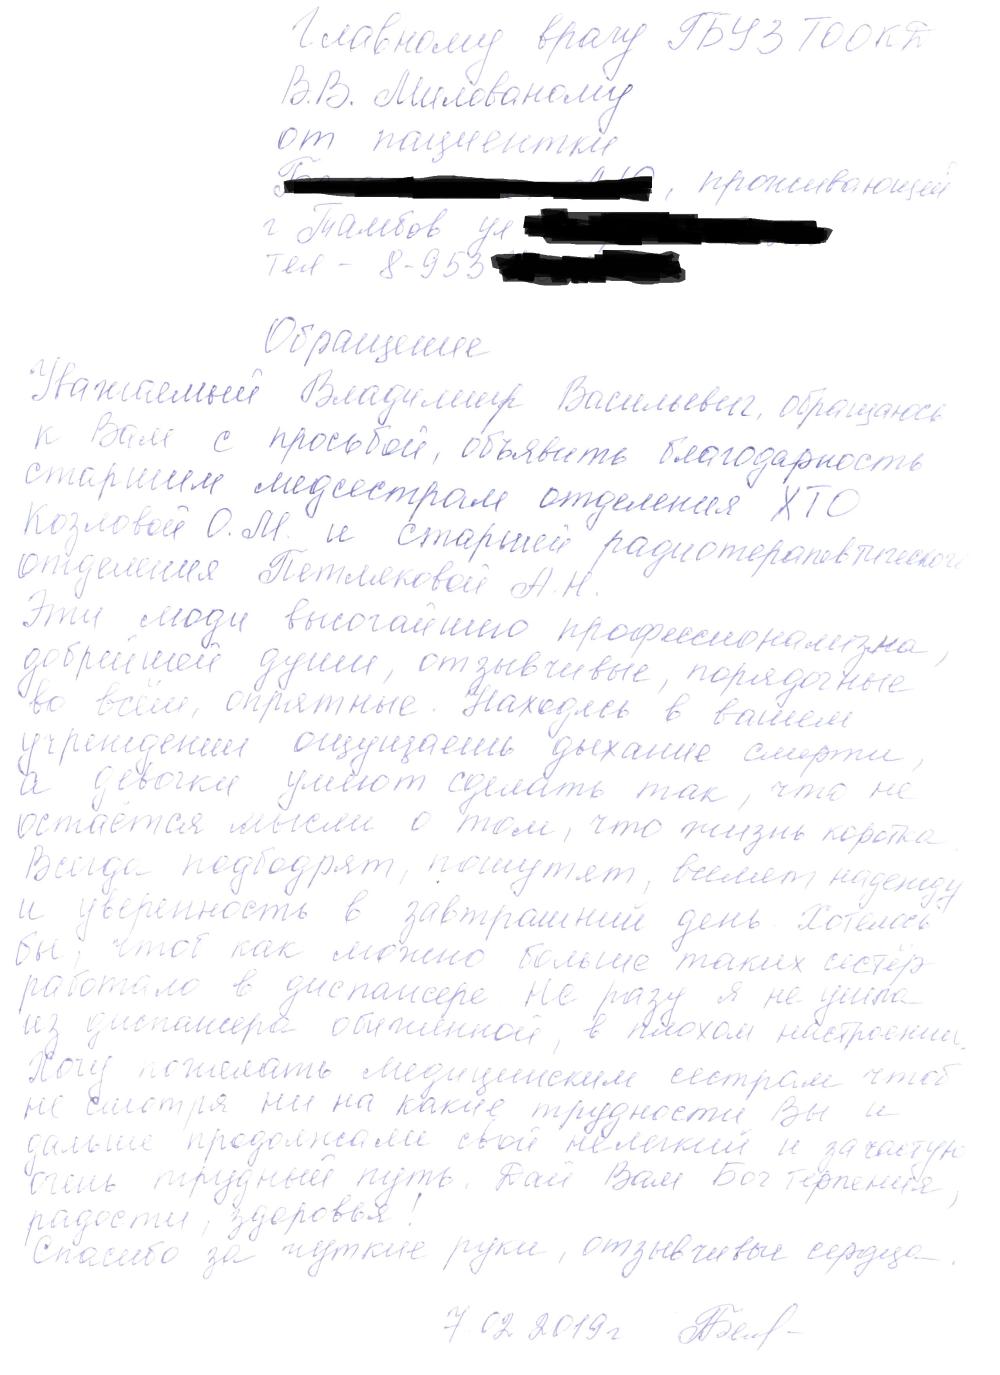 Главному врачу ГБУЗ ТООКД
В.В. Милованому
от пациентки
, проживающей
г Тамбов ул
тел - 8-953
Обращение
Уважаемый Владимир Васильевич, обращаюсь
к Вам с просьбой, объявить благодарность
старшим медсестрам отделения ХТО
Козловой О.М. и старшей радиотерапевтического
отделения Петляковой А.Н.
Эти люди высочайшего профессионализма,
добрейшей души, отзывчивые, порядочные
во всём, опрятные. Находясь в вашем
учреждении ощущаешь дыхание смерти,
а девочки умеют сделать так, что не
остаётся мысли о том, что жизнь коротка.
Всегда подбодрят, пошутят, вселяют надежду
и уверенность в завтрашний день. Хотелось
бы, чтоб как можно больше таких сестёр
работало в диспансере Не разу я не ушла
из диспансера обиженной, в плохом настроении.
Хочу пожелать медицинским сестрам чтоб
не смотря ни на какие трудности Вы и
дальше продолжали свой нелегкий и зачастую
очень трудный путь. Дай Вам Бог терпения,
радости, здоровья!
Спасибо за чуткие руки, отзывчивые сердца.
7.02 2019г